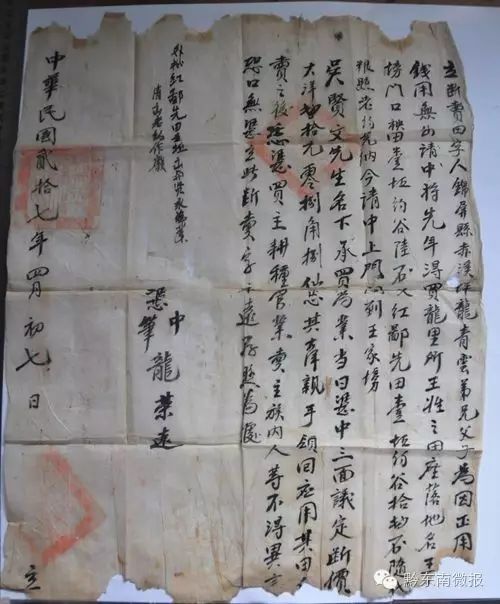 立断賣田字人錦屏縣赤溪坪龍青雲弟兄父子為因正用
錢用無出請中將先年得買龍里所王姓之田座落地名王
塝門口秧田壹坵約谷陸石又紅鄙先田壹坵約谷拾石隨代
粮照老約完納今請中上門問到王家塝
吳賢文先生名下承買為業当日憑中三面議定断價
大洋拾元零捌角捌仙其洋親手領回应用其田
賣之後憑買主耕種管業賣主族内人等不得異言
恐口無憑立此断賣字永遠存照為據
外批紅鄙先田
清
中
憑 龍榮遠
筆
中華民國貳拾七年四月初七日 立
黔东南微报